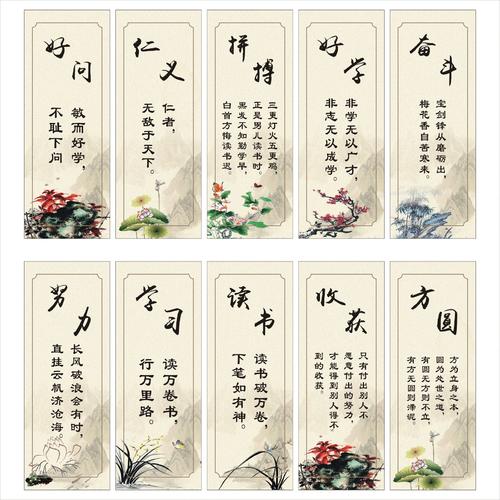 好问
敏而好学，
不耻下问
仁义
仁者，
无敌于天下。
拼搏
三更灯火五更鸡，
正是男儿读书时。
黑发不知勤学早，
白首方悔读书迟。
好学
非学无以广才，
非志无以成学。
奋斗
宝剑锋从磨砺出，
梅花香自苦寒来。
努力
长风破浪会有时，
直挂云帆济沧海。
学习
读万卷书，
行万里路。
读书
读书破万卷，
下笔如有神。
收获
只有付出别人不
愿意付出的努力，
才能得到别人得不
到的收获。
方圆
方为立身之本，
圆为处世之道，
有圆无方则不立，
有方无圆则滞泥。